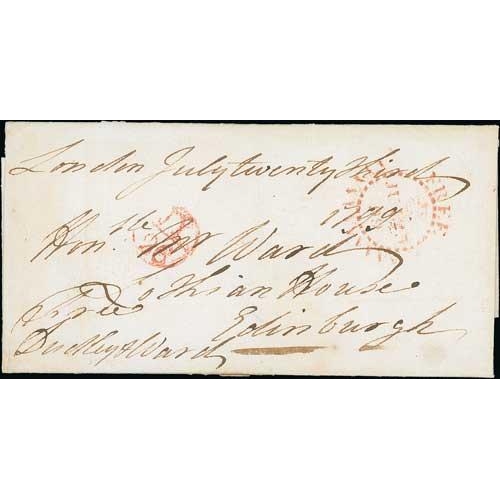 London July twenty third
1799
Hon.ble Mr Ward
Lothian House
Edinburgh
Free
Dudley & Ward
FREE